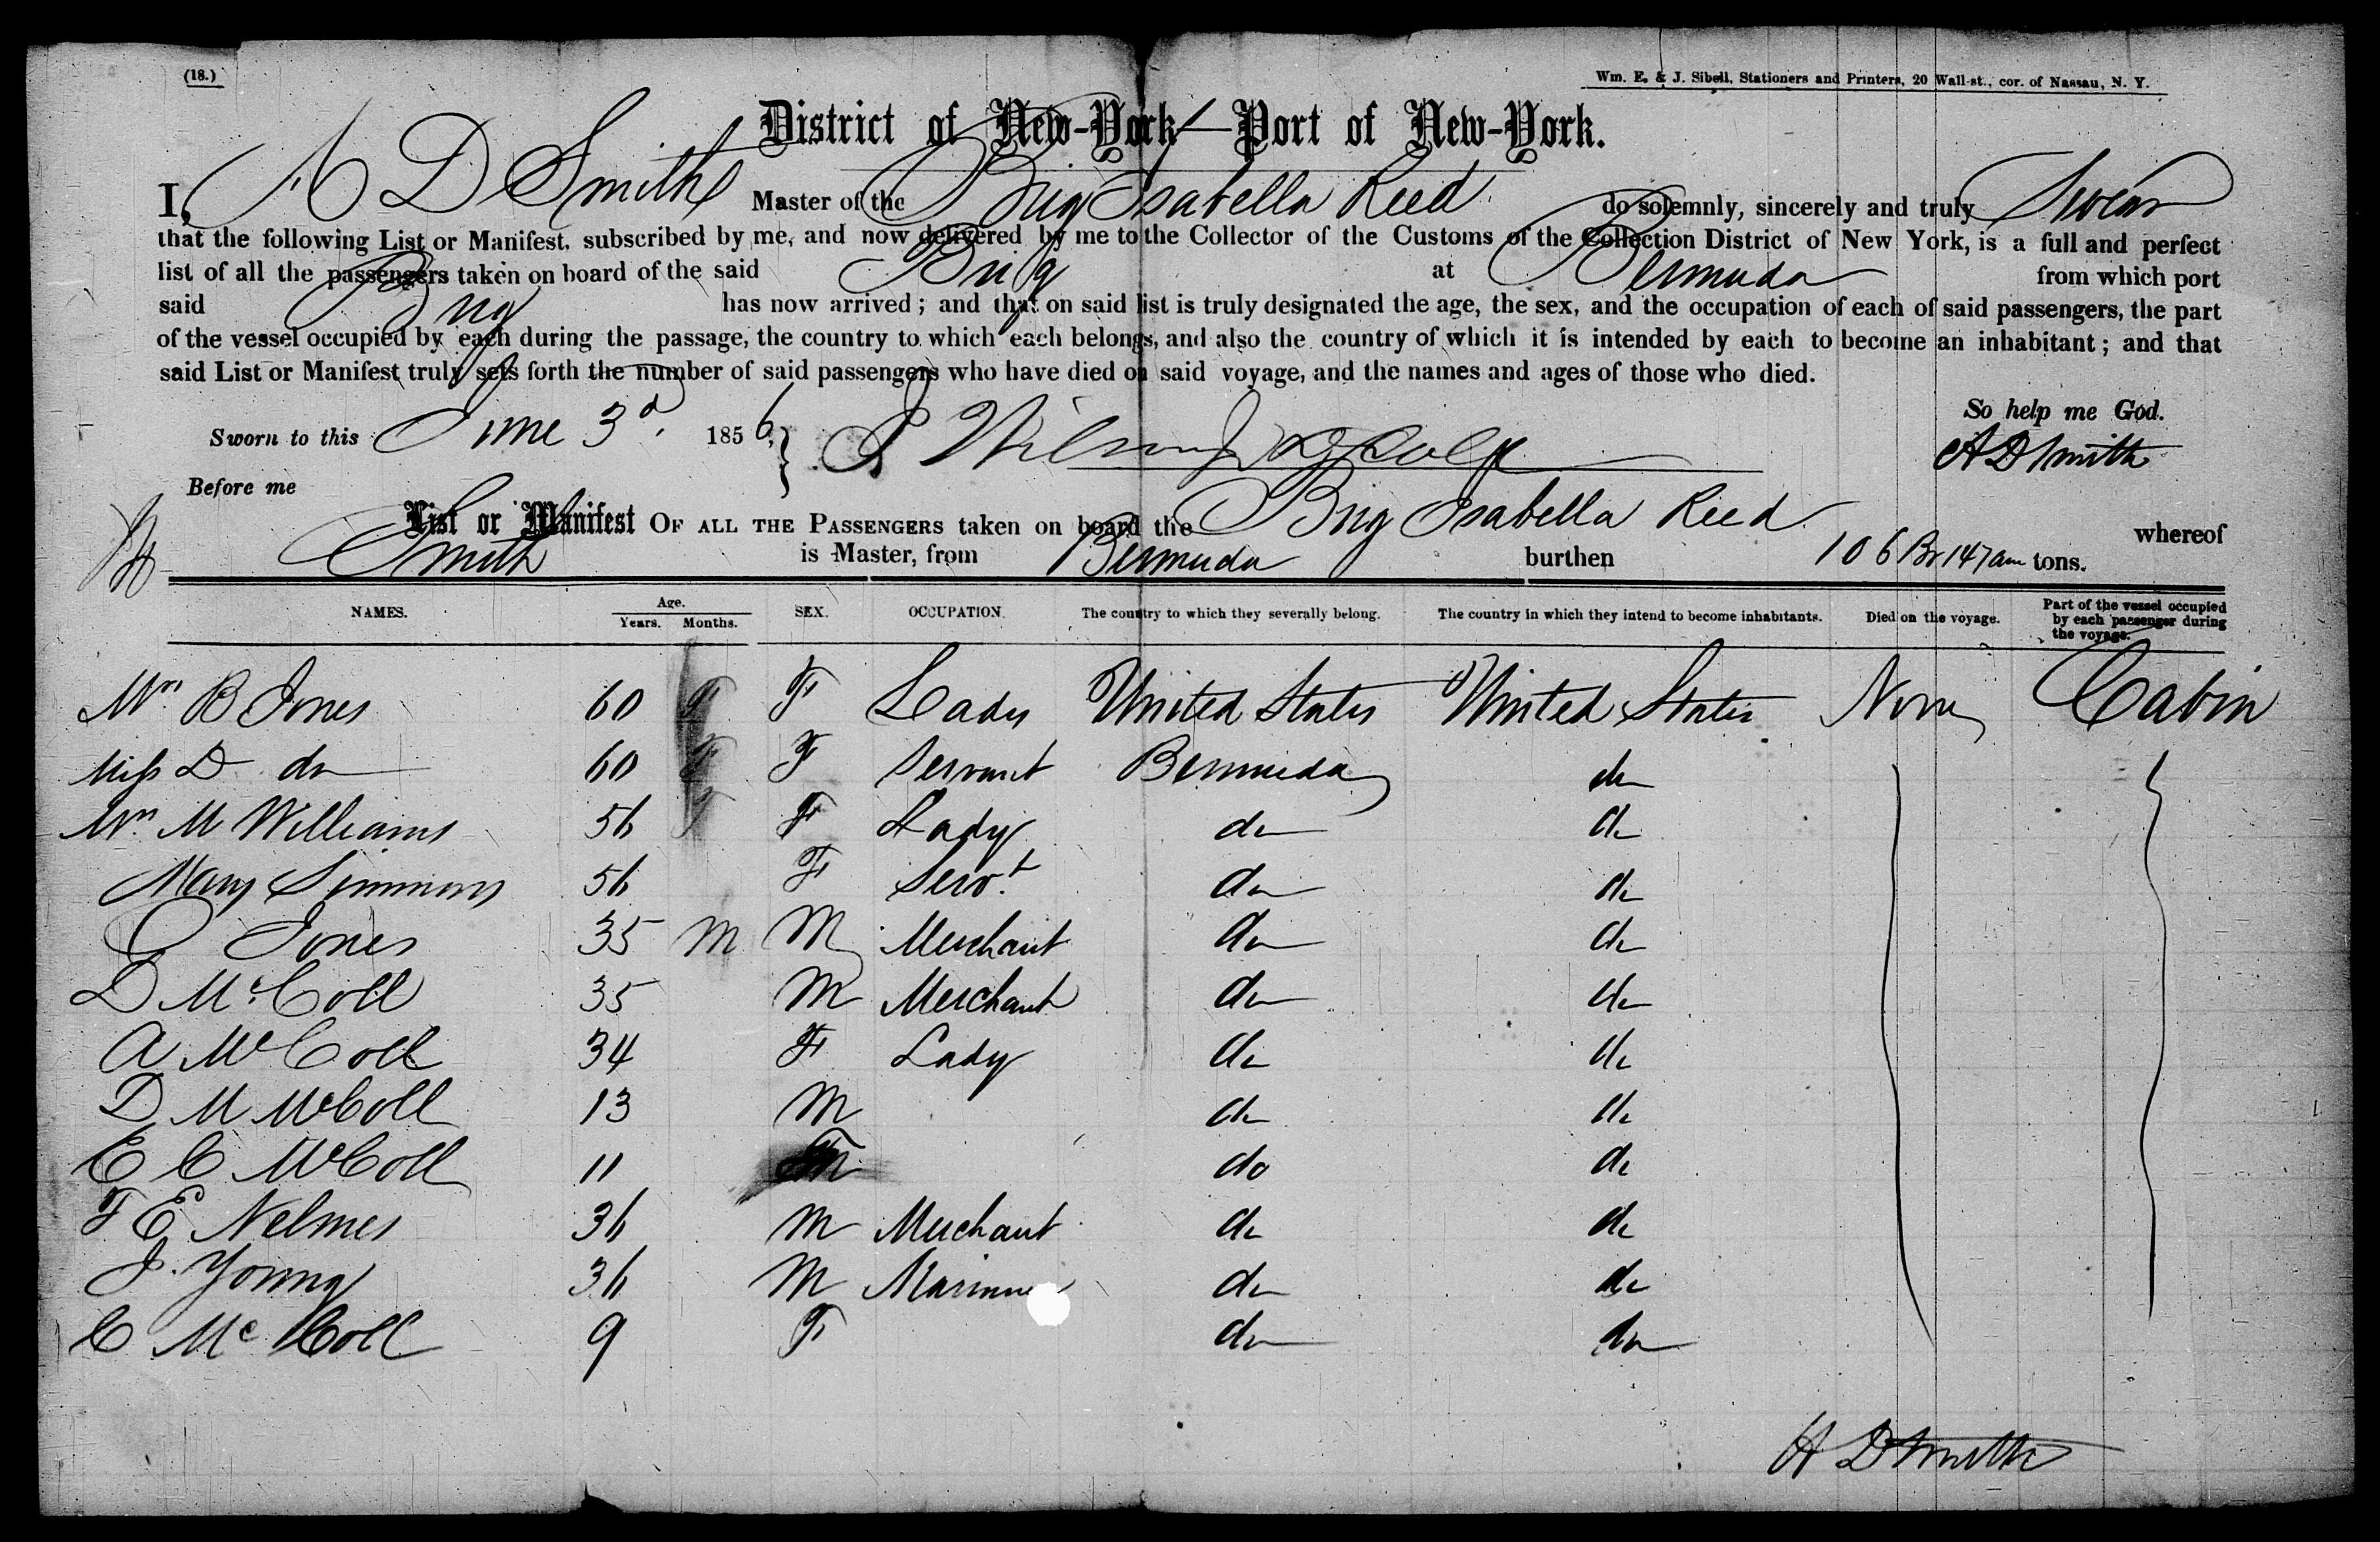 (18.)
Wm. E. & J. Sibell, Stationers and Printers, 20 Wall-st., cor. of Nassau, N. Y.
District of New-York—Port of New-York.
I, A D Smith Master of the Brig Isabella Reed do solemnly, sincerely and truly Swear
that the following List or Manifest, subscribed by me, and now delivered by me to the Collector of the Customs of the Collection District of New York, is a full and perfect
list of all the passengers taken on board of the said Brig at Bermuda from which port
said Brig has now arrived; and that on said list is truly designated the age, the sex, and the occupation of each of said passengers, the part
of the vessel occupied by each during the passage, the country to which each belongs, and also the country of which it is intended by each to become an inhabitant; and that
said List or Manifest truly sets forth the number of said passengers who have died on said voyage, and the names and ages of those who died.
So help me God.
Sworn to this June 3d. 1856, A D Smith
Before me
List or Manifest OF ALL THE PASSENGERS taken on board the Brig Isabella Reed whereof
Smith is Master, from Bermuda burthen 106 Br 147 am tons.
NAMES. Age. Years. Months. SEX. OCCUPATION. The country to which they severally belong. The country in which they intend to become inhabitants. Died on the voyage. Part of the vessel occupied by each passenger during the voyage.
Mrs B Jones 60 F F Lady United States United States None Cabin
Miss D do 60 F F Servant Bermuda do
Mrs M Williams 56 F F Lady do do
Mary Simmons 56 F Servt do do
G Jones 35 M M Merchant do do
D McColl 35 M Merchant do do
A McColl 34 F Lady do do
D M McColl 13 M do do
E C McColl 11 do do
F E Nelmes 36 M Merchant do do
J. Young 36 M Marine do do
C McColl 9 F do do
A D Smith